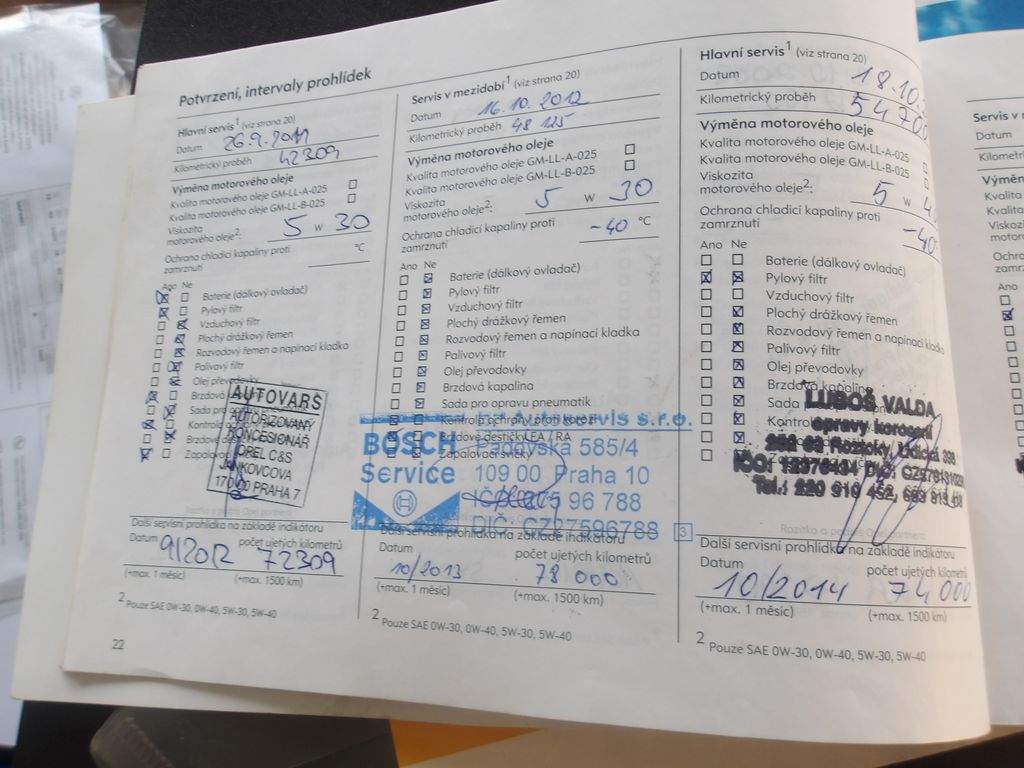 Potvrzení, intervaly prohlídek
Hlavní servis1 (viz strana 20)
Datum 26.9.2011
Kilometrický proběh 42309
Výměna motorového oleje
Kvalita motorového oleje GM-LL-A-025
Kvalita motorového oleje GM-LL-B-025
Viskozita
motorového oleje2: 5 W 30
Ochrana chladicí kapaliny proti
zamrznutí °C
Ano Ne
Baterie (dálkový ovladač)
Pylový filtr
Vzduchový filtr
Plochý drážkový řemen
Rozvodový řemen a napínací kladka
Palivový filtr
Olej převodovky
Brzdová
Sada pro
Kontrola
Brzdové
AUTOVARŠ
AUTORIZOVANÝ
KONCESIONÁŘ
OPEL C&S
JANKOVCOVA
170 00 PRAHA 7
Další servisní prohlídka na základě indikátoru
Datum počet ujetých kilometrů
9/2012 72309
(+max. 1 měsíc) (+max. 1500 km)
2 Pouze SAE 0W-30, 0W-40, 5W-30, 5W-40
22
Servis v mezidobí1 (viz strana 20)
Datum 16.10.2012
Kilometrický proběh 48 125
Výměna motorového oleje
Kvalita motorového oleje GM-LL-A-025
Kvalita motorového oleje GM-LL-B-025
Viskozita
motorového oleje2: 5 W 30
Ochrana chladicí kapaliny proti
zamrznutí -40 °C
Ano Ne
Baterie (dálkový ovladač)
Pylový filtr
Vzduchový filtr
Plochý drážkový řemen
Rozvodový řemen a napínací kladka
Palivový filtr
Olej převodovky
Brzdová kapalina
Sada pro opravu pneumatik
Kontrola ochrany proti korozi
Brzdové destičky EA / RA
Zapalovací svíčky
Autoservis s.r.o.
BOSCH 585/4
Service 109 00 Praha 10
96 788
DIČ: CZ27596788 3
Další servisní prohlídka na základě indikátoru
Datum počet ujetých kilometrů
10/2013 78 000
(+max. 1 měsíc) (+max. 1500 km)
2 Pouze SAE 0W-30, 0W-40, 5W-30, 5W-40
Hlavní servis1 (viz strana 20)
Datum 18.10.
Kilometrický proběh 54700
Výměna motorového oleje
Kvalita motorového oleje GM-LL-A-025
Kvalita motorového oleje GM-LL-B-025
Viskozita
motorového oleje2: 5 W 4
Ochrana chladicí kapaliny proti
zamrznutí -40
Ano Ne
Baterie (dálkový ovladač)
Pylový filtr
Vzduchový filtr
Plochý drážkový řemen
Rozvodový řemen a napínací kladka
Palivový filtr
Olej převodovky
Brzdová kapalina
Sada
LUBOŠ VALDA
opravy karoserií
252 63 Roztoky,
Tel.: 220 910 452,
Další servisní prohlídka na základě indikátoru
Datum počet ujetých kilometrů
10/2014 74 000
(+max. 1 měsíc) (+max. 1500 km)
2 Pouze SAE 0W-30, 0W-40, 5W-30, 5W-40
Servis v
Datum
Ano